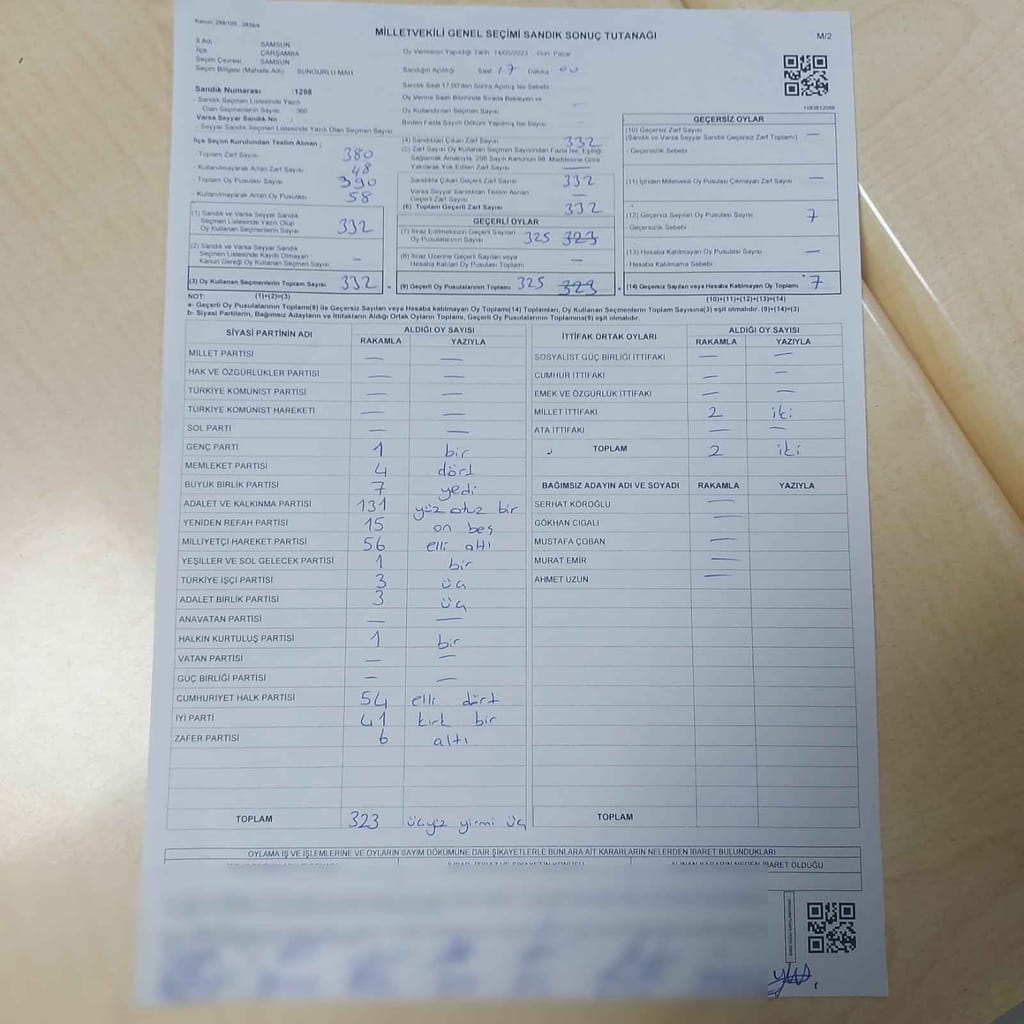 MİLLETVEKİLİ GENEL SEÇİMİ SANDIK SONUÇ TUTANAĞI
M/2
İl Adı SAMSUN
İlçe ÇARŞAMBA
Seçim Çevresi SAMSUN
Seçim Bölgesi (Mahalle Adı) SUNGURLU MAH
Oy Vermenin Yapıldığı Tarih 14/05/2023 Gün Pazar
Sandığın Açıldığı Saat 17 Dakika 00
Sandık Numarası :1298
Varsa Seyyar Sandık No
İlçe Seçim Kurulundan Teslim Alınan ;
- Toplam Zarf Sayısı 380
- Kullanılmayarak Artan Zarf Sayısı 48
- Toplam Oy Pusulası Sayısı 390
- Kullanılmayarak Artan Oy Pusulası 58
(1) Sandık ve Varsa Seyyar Sandık
Seçmen Listesinde Yazılı Olup
Oy Kullanan Seçmenlerin Sayısı 332
(2) Sandık ve Varsa Seyyar Sandık
Seçmen Listesinde Kayıtlı Olmayan
Kanun Gereği Oy Kullanan Seçmen Sayısı —
(3) Oy Kullanan Seçmenlerin Toplam Sayısı 332
(4) Sandıktan Çıkan Zarf Sayısı 332
Sandıkta Çıkan Geçerli Zarf Sayısı 332
Varsa Seyyar Sandıktan Teslim Alınan
Geçerli Zarf Sayısı
(6) Toplam Geçerli Zarf Sayısı 332
GEÇERLİ OYLAR
(7) İtiraz Edilmeksizin Geçerli Sayılan
Oy Pusulalarının Sayısı 325 323
(8) İtiraz Üzerine Geçerli Sayılan veya
Hesaba Katılan Oy Pusulası Toplamı —
(9) Geçerli Oy Pusulalarının Toplamı 325 323
GEÇERSİZ OYLAR
(10) Geçersiz Zarf Sayısı —
(Sandık ve Varsa Seyyar Sandık Geçersiz Zarf Toplamı)
- Geçersizlik Sebebi
(11) İçinden Milletvekili Oy Pusulası Çıkmayan Zarf Sayısı —
(12) Geçersiz Sayılan Oy Pusulası Sayısı 7
- Geçersizlik Sebebi
(13) Hesaba Katılmayan Oy Pusulası Sayısı —
- Hesaba Katılmama Sebebi
(14) Geçersiz Sayılan veya Hesaba Katılmayan Oy Toplamı 7
NOT: (1)+(2)=(3) (10)+(11)+(12)+(13)=(14)
a- Geçerli Oy Pusulalarının Toplamı(9) ile Geçersiz Sayılan veya Hesaba katılmayan Oy Toplamı(14) Toplamları, Oy Kullanan Seçmenlerin Toplam Sayısına(3) eşit olmalıdır. (9)+(14)=(3)
b- Siyasi Partilerin, Bağımsız Adayların ve İttifakların Aldığı Ortak Oyların Toplamı, Geçerli Oy Pusulalarının Toplamına(9) eşit olmalıdır.
SİYASİ PARTİNİN ADI ALDIĞI OY SAYISI
RAKAMLA YAZIYLA
MİLLET PARTİSİ — —
HAK VE ÖZGÜRLÜKLER PARTİSİ — —
TÜRKİYE KOMÜNİST PARTİSİ — —
TÜRKİYE KOMÜNİST HAREKETİ — —
SOL PARTİ — —
GENÇ PARTİ 1 bir
MEMLEKET PARTİSİ 4 dört
BÜYÜK BİRLİK PARTİSİ 7 yedi
ADALET VE KALKINMA PARTİSİ 131 yüz otuz bir
YENİDEN REFAH PARTİSİ 15 on beş
MİLLİYETÇİ HAREKET PARTİSİ 56 elli altı
YEŞİLLER VE SOL GELECEK PARTİSİ 1 bir
TÜRKİYE İŞÇİ PARTİSİ 3 üç
ADALET BİRLİK PARTİSİ 3 üç
ANAVATAN PARTİSİ — —
HALKIN KURTULUŞ PARTİSİ 1 bir
VATAN PARTİSİ — —
GÜÇ BİRLİĞİ PARTİSİ — —
CUMHURİYET HALK PARTİSİ 54 elli dört
İYİ PARTİ 41 kırk bir
ZAFER PARTİSİ 6 altı
TOPLAM 323 üçyüz yirmi üç
İTTİFAK ORTAK OYLARI ALDIĞI OY SAYISI
RAKAMLA YAZIYLA
SOSYALİST GÜÇ BİRLİĞİ İTTİFAKI — —
CUMHUR İTTİFAKI — —
EMEK VE ÖZGÜRLÜK İTTİFAKI — —
MİLLET İTTİFAKI 2 iki
ATA İTTİFAKI — —
TOPLAM 2 iki
BAĞIMSIZ ADAYIN ADI VE SOYADI RAKAMLA YAZIYLA
SERHAT KÖROĞLU —
GÖKHAN CIGALI —
MUSTAFA ÇOBAN —
MURAT EMİR —
AHMET UZUN —
TOPLAM
OYLAMA İŞ VE İŞLEMLERİNE VE OYLARIN SAYIM DÖKÜMÜNE DAİR ŞİKAYETLERLE BUNLARA AİT KARARLARIN NELERDEN İBARET BULUNDUKLARI